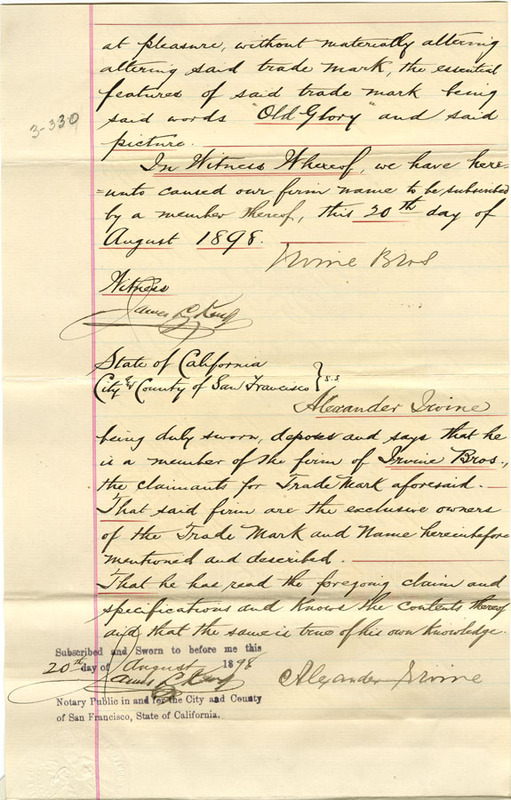 at pleasure, without materially altering
altering said trade mark, the essential
features of said trade mark being
said words "Old Glory" and said
picture.
3-330
In Witness Whereof, we have here=
=unto caused our firm name to be subscribed
by a member thereof, this 20th day of
August 1898.
Irvine Bros
Witness
James L. King
State of California
City & County of San Francisco } s.s
Alexander Irvine
being duly sworn, deposes and says that he
is a member of the firm of Irvine Bros.,
the claimants for Trade Mark aforesaid. —
That said firm are the exclusive owners
of the Trade Mark and Name hereinbefore
mentioned and described.
That he has read the foregoing claim and
specifications and knows the contents thereof
and that the same is true of his own knowledge.
Subscribed and Sworn to before me this
20th day of August 1898
James L. King
Alexander Irvine
Notary Public in and for the City and County
of San Francisco, State of California.